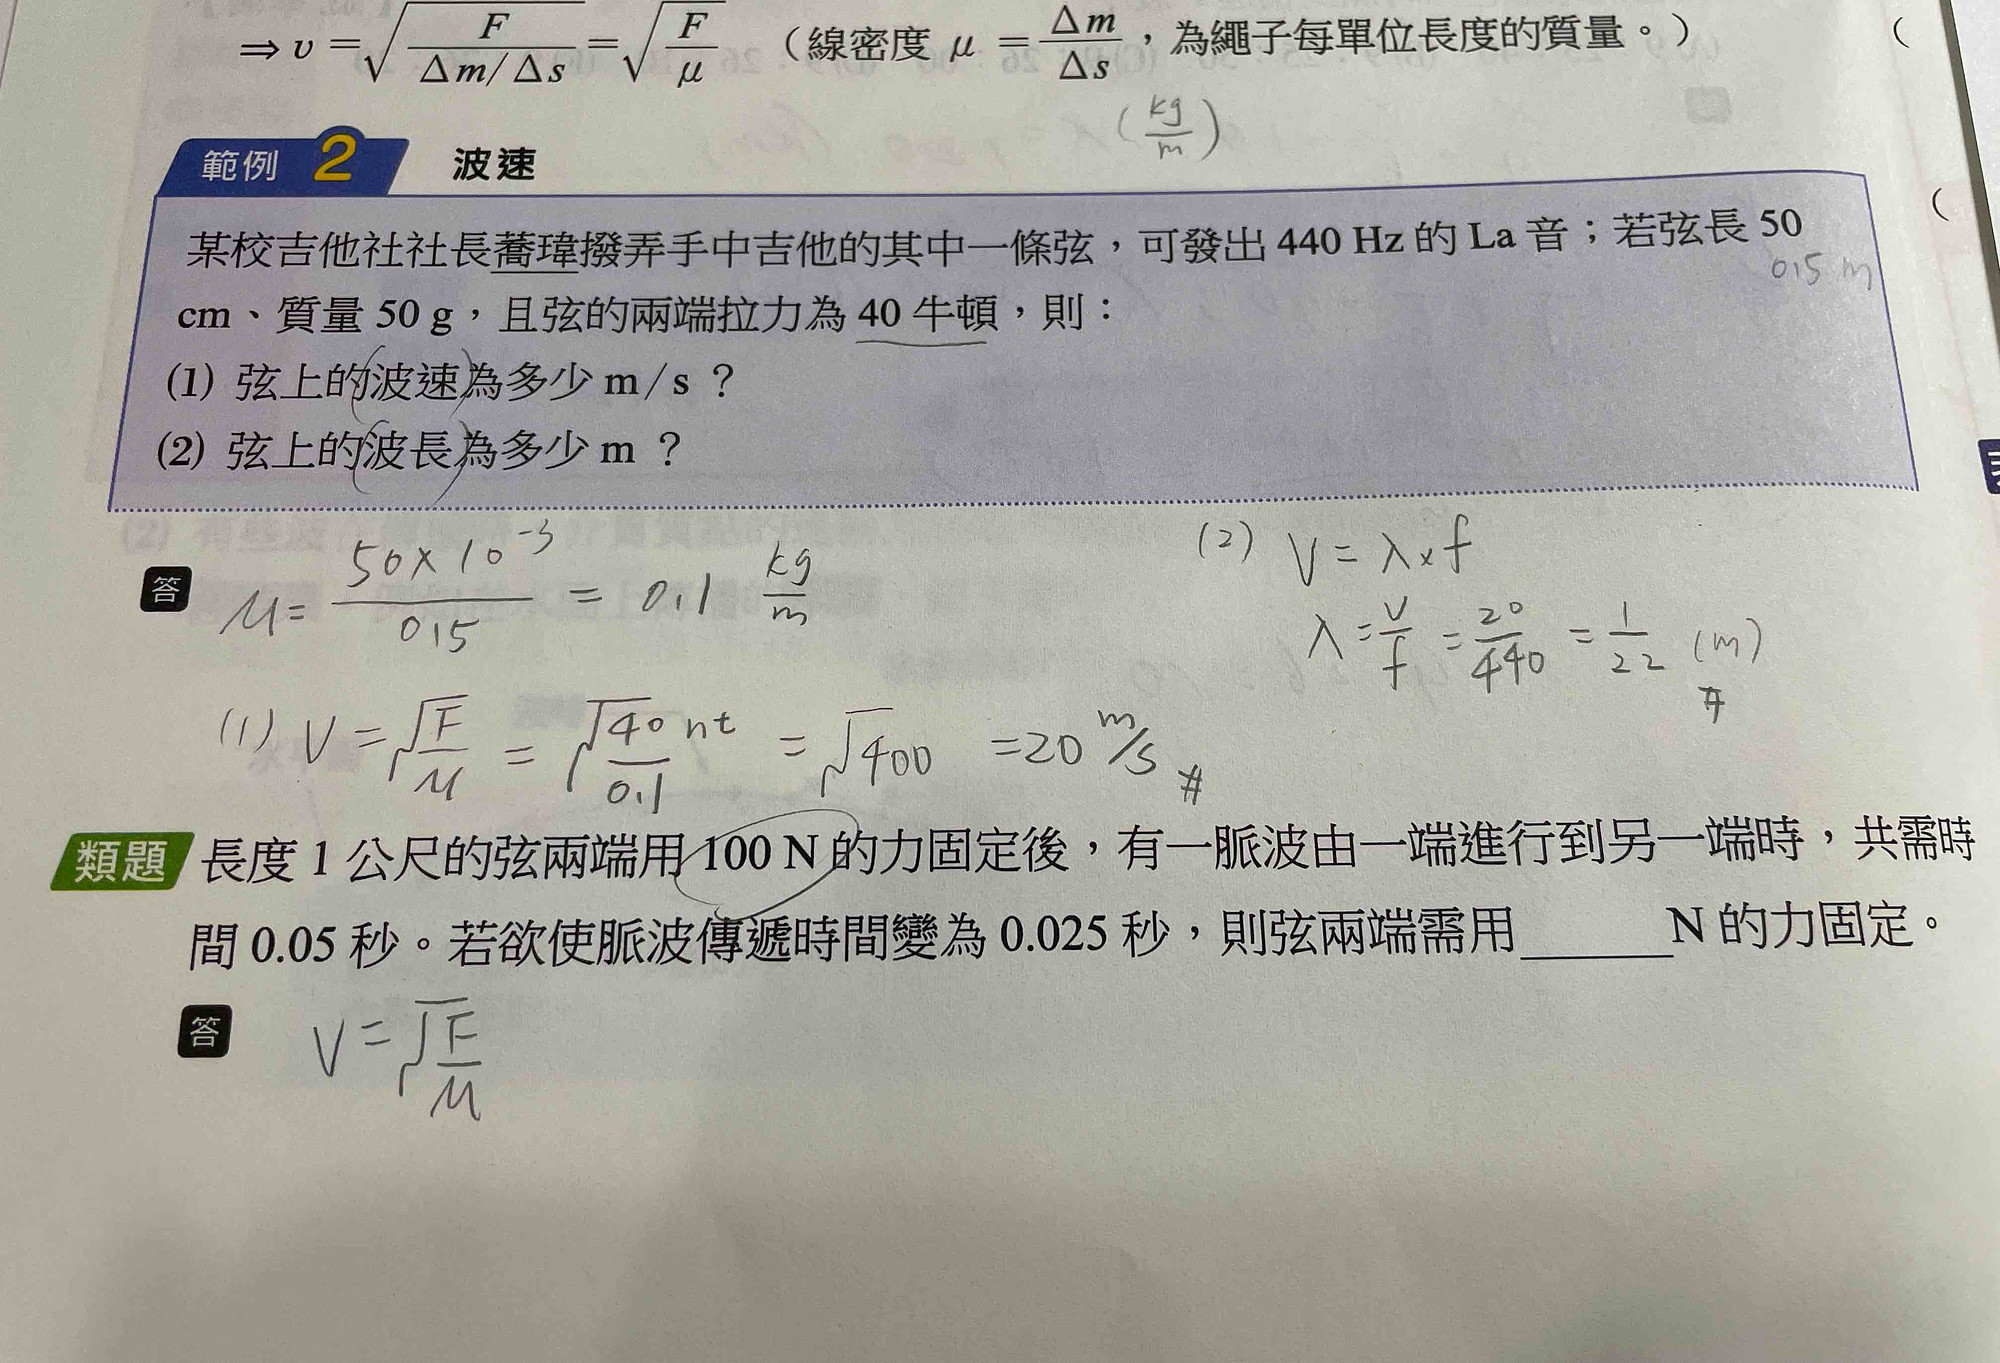 ⇒ v = √(F / Δm/Δs) = √(F/μ) （線密度 μ = Δm/Δs，為繩子每單位長度的質量。）
(kg/m)
範例 2 波速
某校吉他社社長蕎瑋撥弄手中吉他的其中一條弦，可發出 440 Hz 的 La 音；若弦長 50
0.5 m
cm、質量 50 g，且弦的兩端拉力為 40 牛頓，則：
(1) 弦上的(波速)為多少 m / s ？
(2) 弦上的(波長)為多少 m ？
答 μ = 50×10⁻³ / 0.5 = 0.1 kg/m
(1) V = √(F/μ) = √(40 nt / 0.1) = √400 = 20 m/s #
(2) V = λ × f
λ = V/f = 20/440 = 1/22 (m) #
類題 長度 1 公尺的弦兩端用 100 N 的力固定後，有一脈波由一端進行到另一端時，共需時
間 0.05 秒。若欲使脈波傳遞時間變為 0.025 秒，則弦兩端需用______N 的力固定。
答 V = √(F/μ)